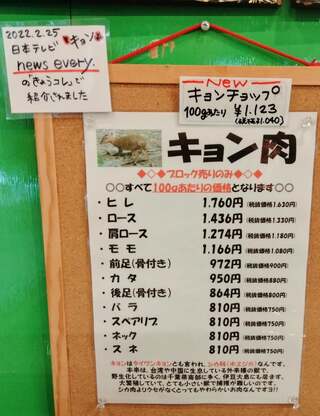 2022.2.25
日本テレビ キョン
news every.
の「きょうコレ」で
紹介されました
New
キョンチョップ
100gあたり ¥1,123
(税抜¥1,040)
キョン肉
◆◇◆ブロック売りのみ◆◇◆
○○すべて100gあたりの価格となります○○
・ヒレ 1.760円(税抜価格1.630円)
・ロース 1.436円(税抜価格1.330円)
・肩ロース 1.274円(税抜価格1.180円)
・モモ 1.166円(税抜価格1.080円)
・前足(骨付き) 972円(税抜価格900円)
・カタ 950円(税抜価格880円)
・後足(骨付き) 864円(税抜価格800円)
・バラ 810円(税抜価格750円)
・スペアリブ 810円(税抜価格750円)
・ネック 810円(税抜価格750円)
・スネ 810円(税抜価格750円)
キョンはタイワンキョンとも言われ、シカ科(ホエジカ)なんです。
本来は、台湾や中国に生息している外来種の獣で、
野生化しているのは千葉県南部に多く、伊豆大島にも居ます。
大繁殖していて、とても小さい獣で捕獲が難しいのです。
シカ肉よりクセがなくとってもやわらかいお肉なんですヨ!!